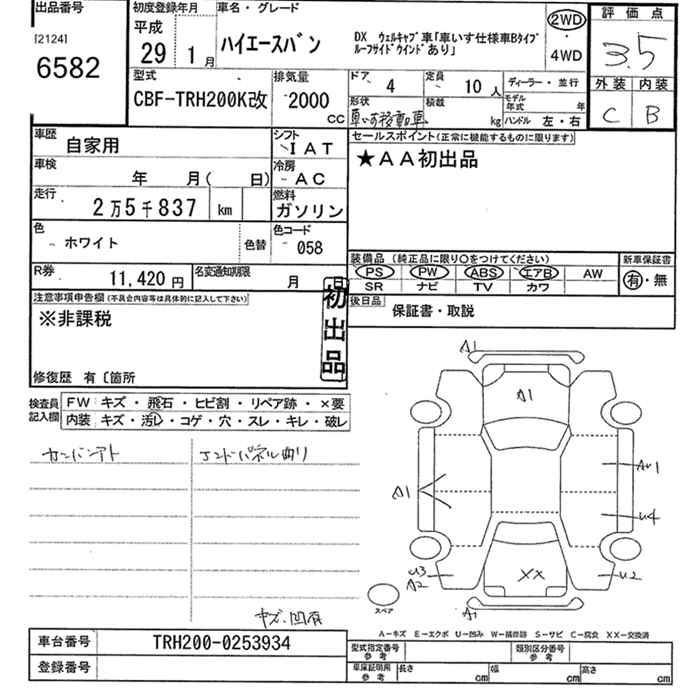 出品番号
[2124]
6582
初度登録年月
平成
29 1 月
車名・グレード
ハイエースバン
DX ウェルキャブ車「車いす仕様車Bタイプ
ルーフサイドウインドあり」
2WD
・
4WD
評価点
3.5
外装 内装
C B
型式
CBF-TRH200K改
排気量
2000
CC
ドア 4
定員 10 人
ディーラー・並行
形状
積載
kg
モデル
年式 年
ハンドル 左・右
車歴
自家用
シフト
IAT
車検
年 月( 日)
冷房
AC
走行
2万5千837 km
燃料
ガソリン
色
ホワイト
色替
色コード
058
R券
11,420 円
名変通知期限
月 日
セールスポイント(正常に機能するものに限ります)
★AA初出品
装備品 (純正品に限り〇をつけてください)
PS PW ABS エアB AW
SR ナビ TV カワ
新車保証書
有・無
後日品
保証書・取説
注意事項申告欄(不具合内容等は具体的に記入して下さい)
※非課税
初出品
修復歴 有〔箇所
検査員
記入欄
FW キズ・飛石・ヒビ割・リペア跡・×要
内装 キズ・汚レ・コゲ・穴・スレ・キレ・破レ
エンドパネル曲り
キズ、凹有
A1
A1
A1
AU1
U4
U3
A2
XX
U2
A1
スペア
A-キズ E-エクボ U-凹み W-補修跡 S-サビ C-腐食 XX-交換済
車台番号
TRH200-0253934
登録番号
型式指定番号
参考
類別区分番号
参考
車庫証明用
参考
長さ cm
幅 cm
高さ cm